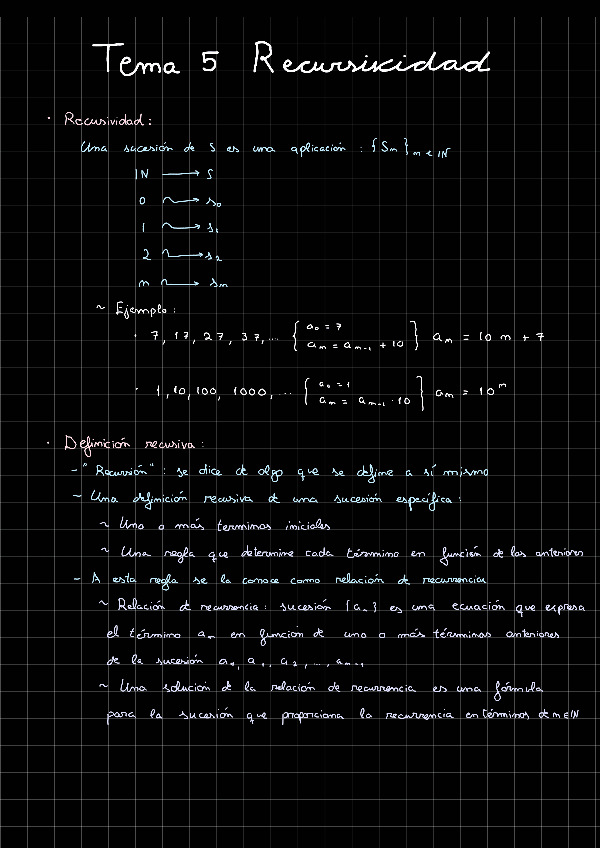 Tema 5 Recursividad
· Recursividad:
Una sucesión de S es una aplicación : {Sm}m∈IN
IN → S
0 → s0
1 → s1
2 → s2
m → sm
~ Ejemplo:
· 7, 17, 27, 37,... { a0 = 7 am = am-1 + 10 } am = 10 m + 7
· 1, 10, 100, 1000,... { a0 = 1 am = am-1 · 10 } am = 10^m
· Definición recursiva:
- "Recursión": se dice de algo que se define a sí mismo
~ Una definición recusiva de una sucesión específica:
~ Uno o más terminos iniciales
~ Una regla que determine cada término en función de los anteriores
- A esta regla se la conoce como relación de recurrencia
~ Relación de recurrencia: sucesión {an} es una ecuación que expresa
el término an en función de uno o más términos anteriores
de la sucesión a0, a1, a2, ..., am-1
~ Una solución de la relación de recurrencia es una fórmula
para la sucesión que proporciona la recurrencia en términos de m∈IN